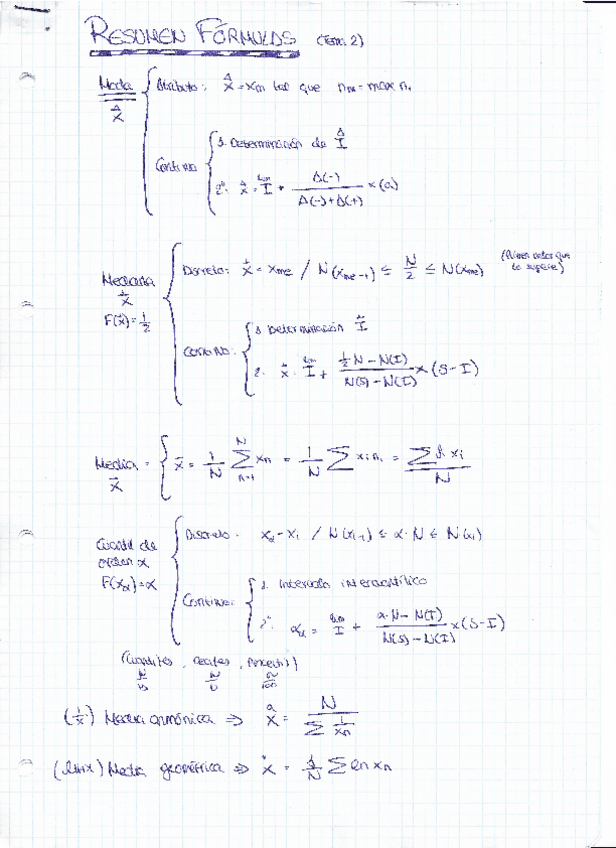 RESUMEN FÓRMULAS (Tema 2)
Moda x̂
Atributo: x̂ = xm tal que nm = max n.
Continua
1. Determinación de Î
2º x̂ = I + Δ(-) / (Δ(-) + Δ(+)) × (a)
Mediana x̃
F(x̃) = 1/2
Discreto: x̃ = xme / N(xme-1) ≤ N/2 ≤ N(xme) (Primer valor que lo supere)
Continuo:
1. Determinación Ĩ
2. x̃ = I + (1/2 N - N(I)) / (N(S) - N(I)) × (S - I)
Media = x̄
x̄ = 1/N Σ xn = 1/N Σ xi ni = Σ xi / N
Cuantil de orden α
F(xα) = α
Discreto: xα = xi / N(xi-1) ≤ α·N ≤ N(xi)
Continuo:
1. Intervalo intercuantílico
2º xα = I + (α·N - N(I)) / (N(S) - N(I)) × (S - I)
(Cuartiles, Deciles, Percentil)
(1/x) Media armónica ⇒ x = N / Σ 1/xn
(ln x) Media geométrica ⇒ x = 1/N Σ ln xn